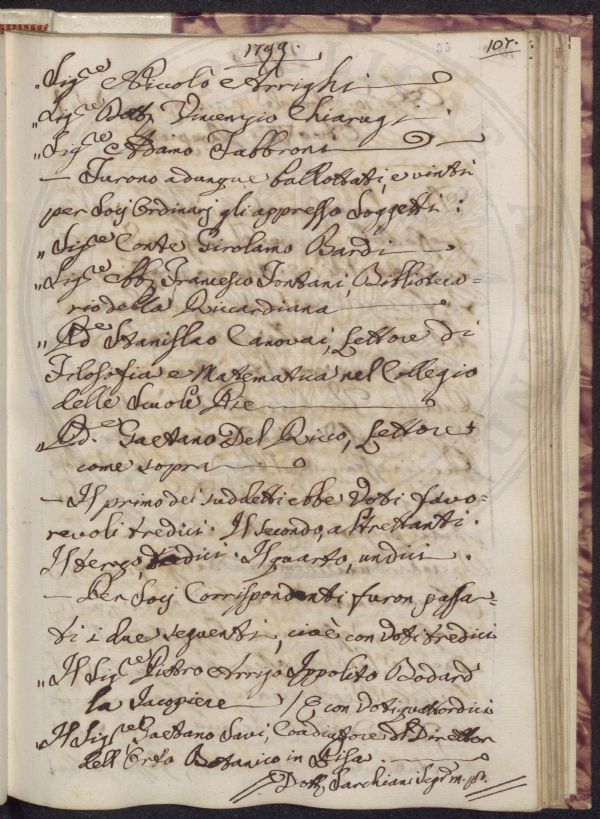 1799.
55
107.
„ Sig.re Niccolò Arrighi
„ Sig.re Dott. Vincenzio Chiarugi
„ Sig.re Adamo Fabbroni
— Furono adunque ballottati, e vinti
per Socj Ordinarj gli appresso Soggetti:
„ Sig.re Conte Girolamo Bardi
„ Sig.re Abb. Francesco Fontani, Biblioteca-
rio della Riccardiana
„ P.dre Stanislao Canovai, Lettore di
Filosofia e Matematica nel Collegio
delle Scuole Pie
„ P.dre Gaetano Del Ricco, Lettore
come sopra
— Il primo dei suddetti ebbe Voti favo-
revoli tredici. Il secondo, altrettanti.
Il terzo, tredici. Il quarto, undici.
— Per Socj Corrispondenti furon passa-
ti i due seguenti, cioè con Voti tredici
„ Il Sig.re Pietro Arrigo Ippolito Bodard
la Jacopiere // E, con Voti quattordici
„ Il Sig.re Gaetano Savi, Coadiutore al Direttor
dell'Orto Botanico in Pisa.
Dott. Sarchiani Segr.